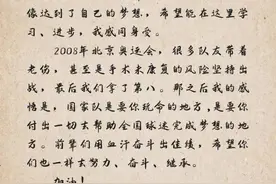 像达到了自己的梦想，希望能在这里学
习、进步，我感同身受。
2008年北京奥运会，很多队友带着
老伤，甚至是手术未康复的风险坚持出
战，最后我们拿了第八。那之后我的感
悟是，国家队是要你玩命的地方，是要你
付出一切去帮助全国球迷完成梦想的地
方。前辈们用血汗奋斗出佳绩，希望你
们也一样去努力、奋斗、继承。
加油！